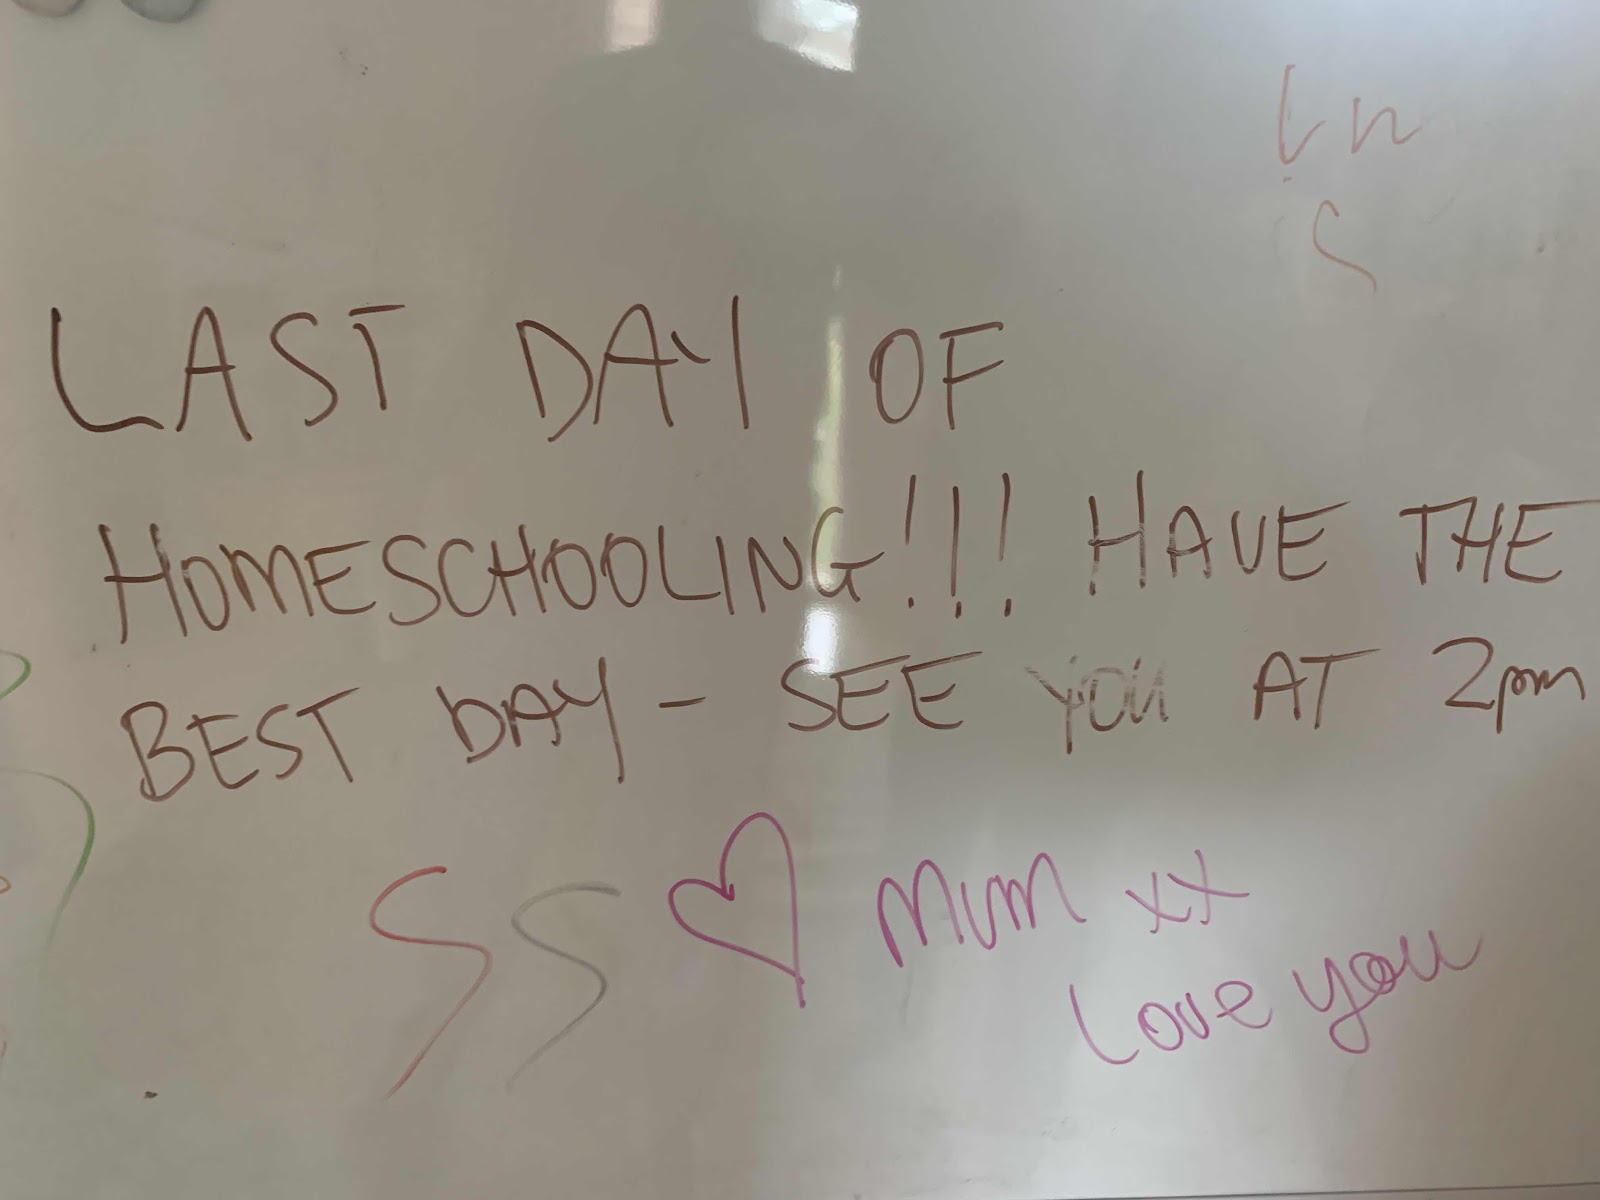 LAST DAY OF
HOMESCHOOLING!!! HAVE THE
BEST DAY - SEE YOU AT 2pm
SS ♡ MUM xx
Love you